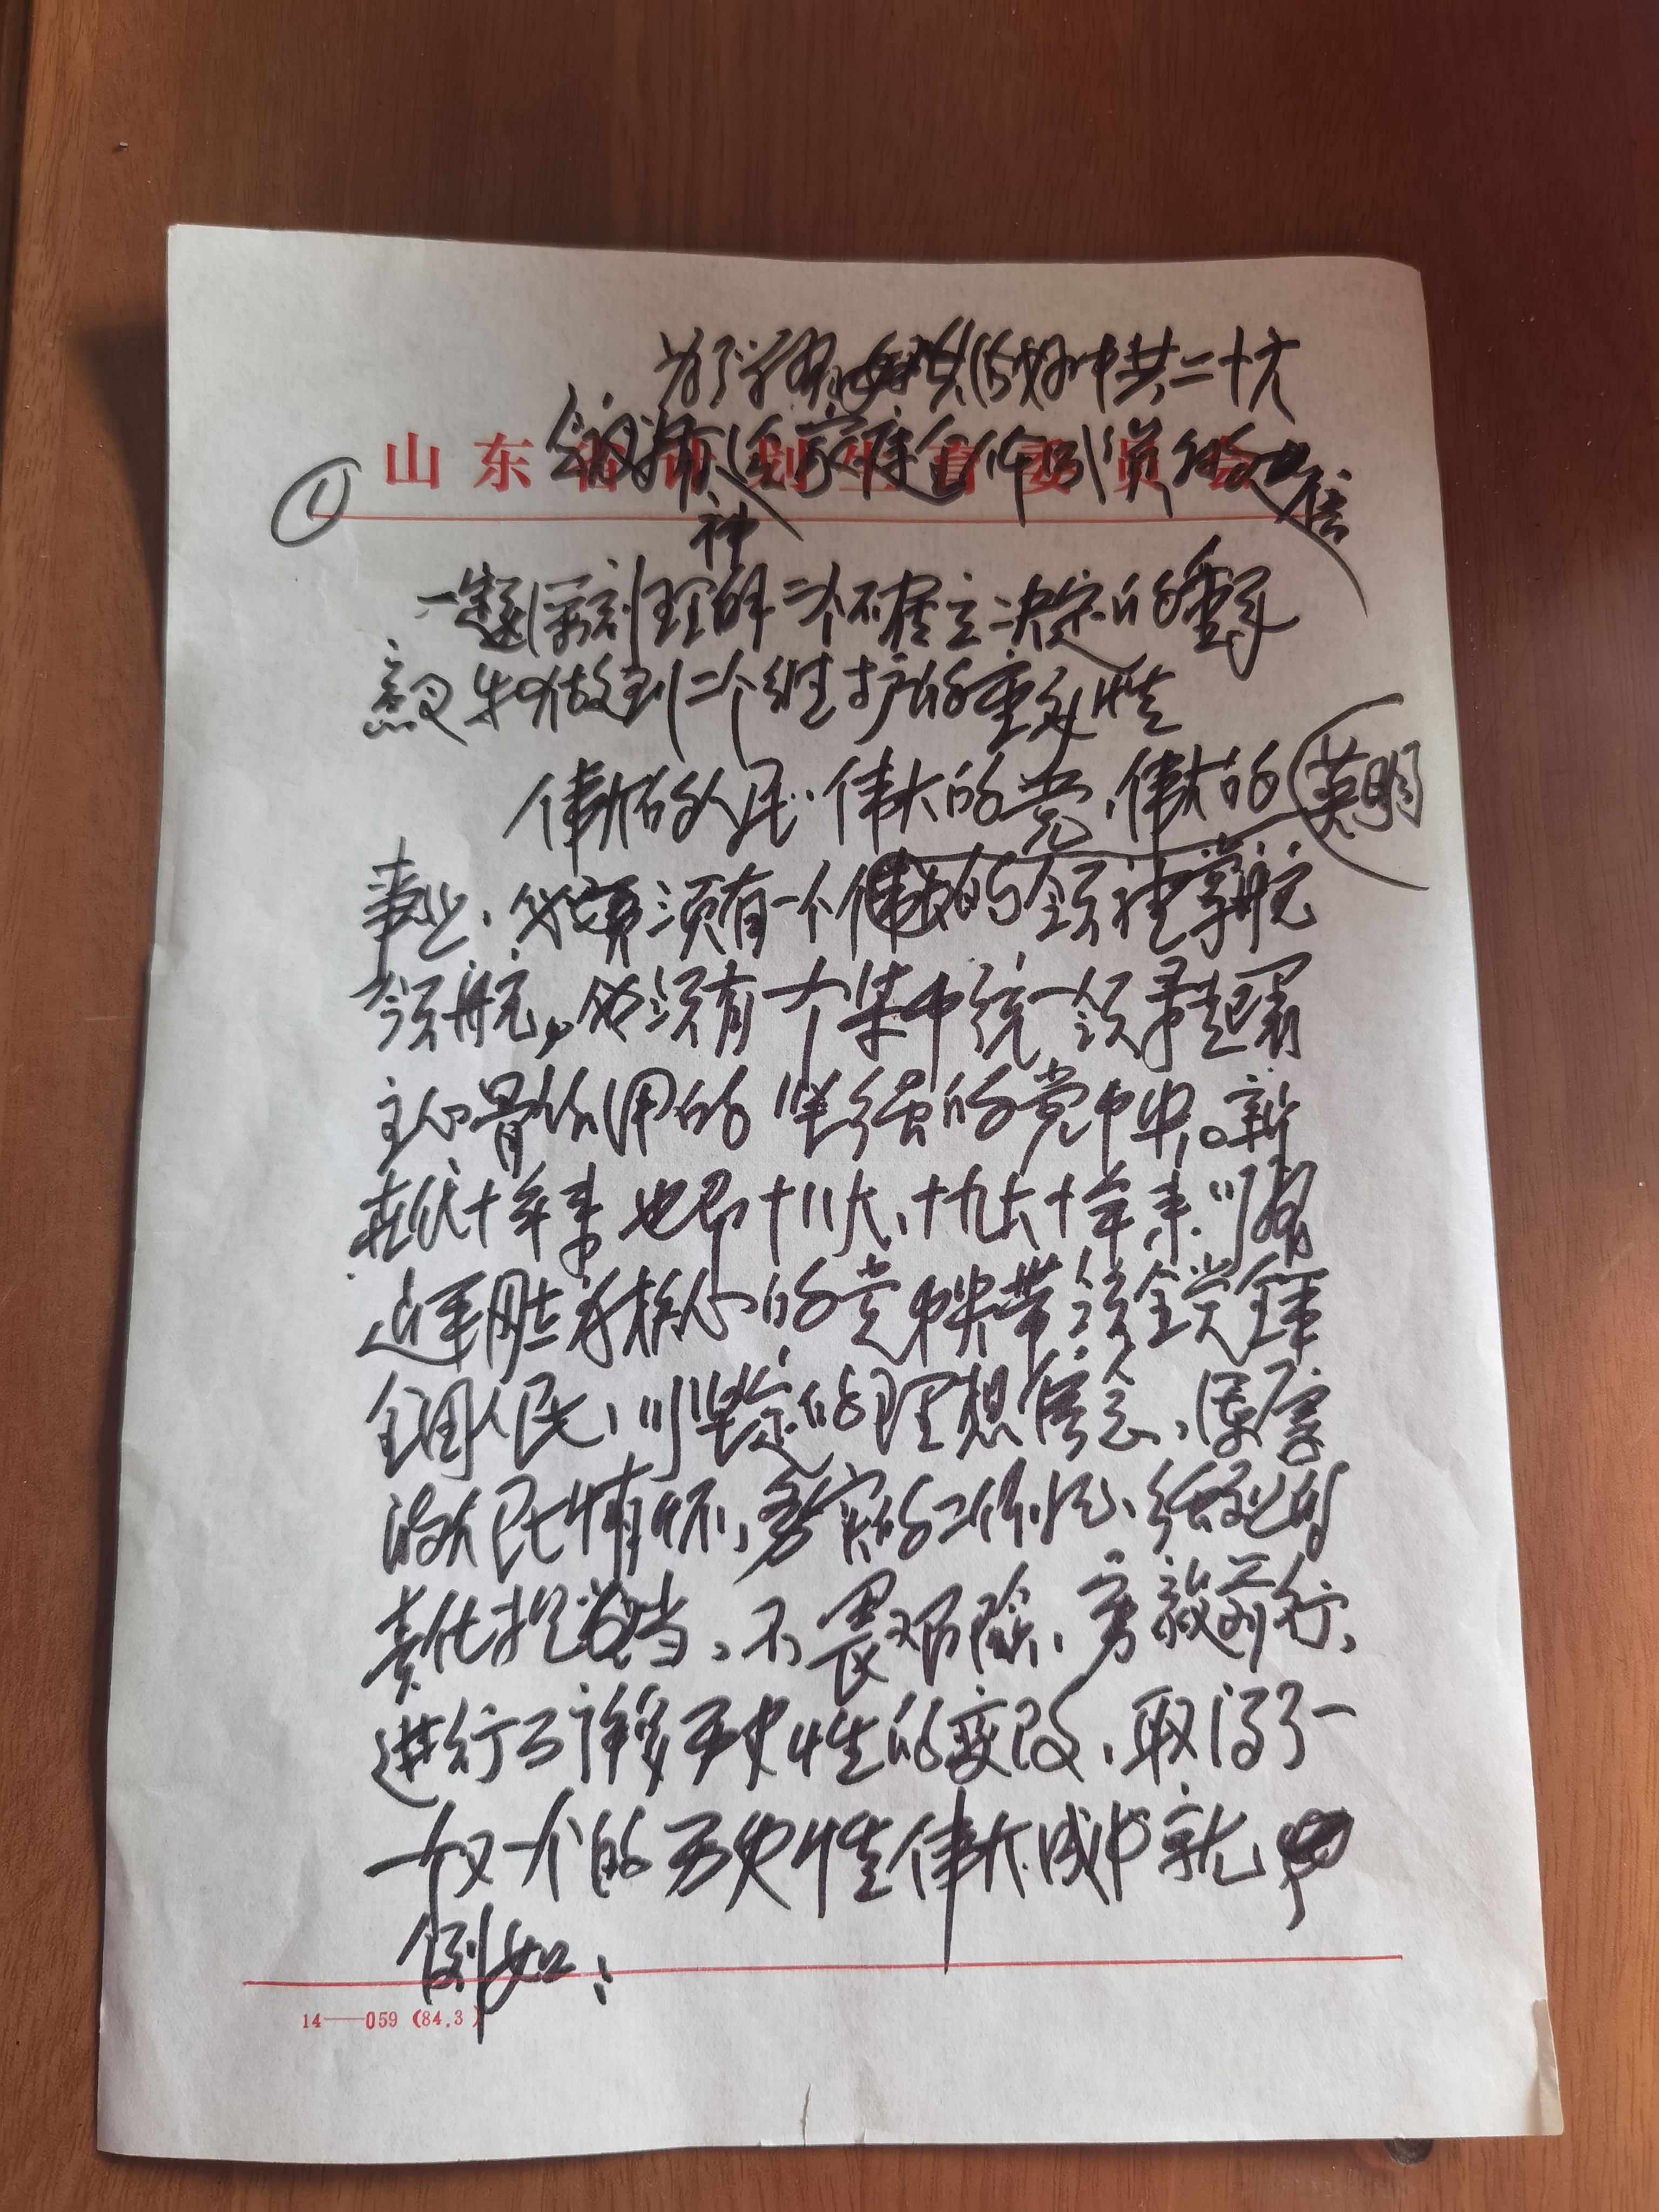 为了学习好贯彻好中共二十大
会议精 给家庭全体成员的一封信
山东省计划生育委员会
①
神
一定要深刻理解二个确立决定的重要
意义 牢切做到二个维护的重要性
伟大的人民、伟大的党、伟大的 英明
事业、必须须有一个伟大的领袖掌航
领航。必须有一个集中统一领导起着
主心骨作用的坚强的党中央。新
时代十年来 也即十八大、十九大十年来、以习
近平同志为核心的党中央带领全党全军
全国人民、以坚定的理想信念、深厚
的人民情怀、务实的工作作风、强烈的
责任担当、不畏艰险、勇毅前行、
进行了许多历史性的变改、取得了一
个又一个的历史性伟大成就
例如：
14——059（84.3）